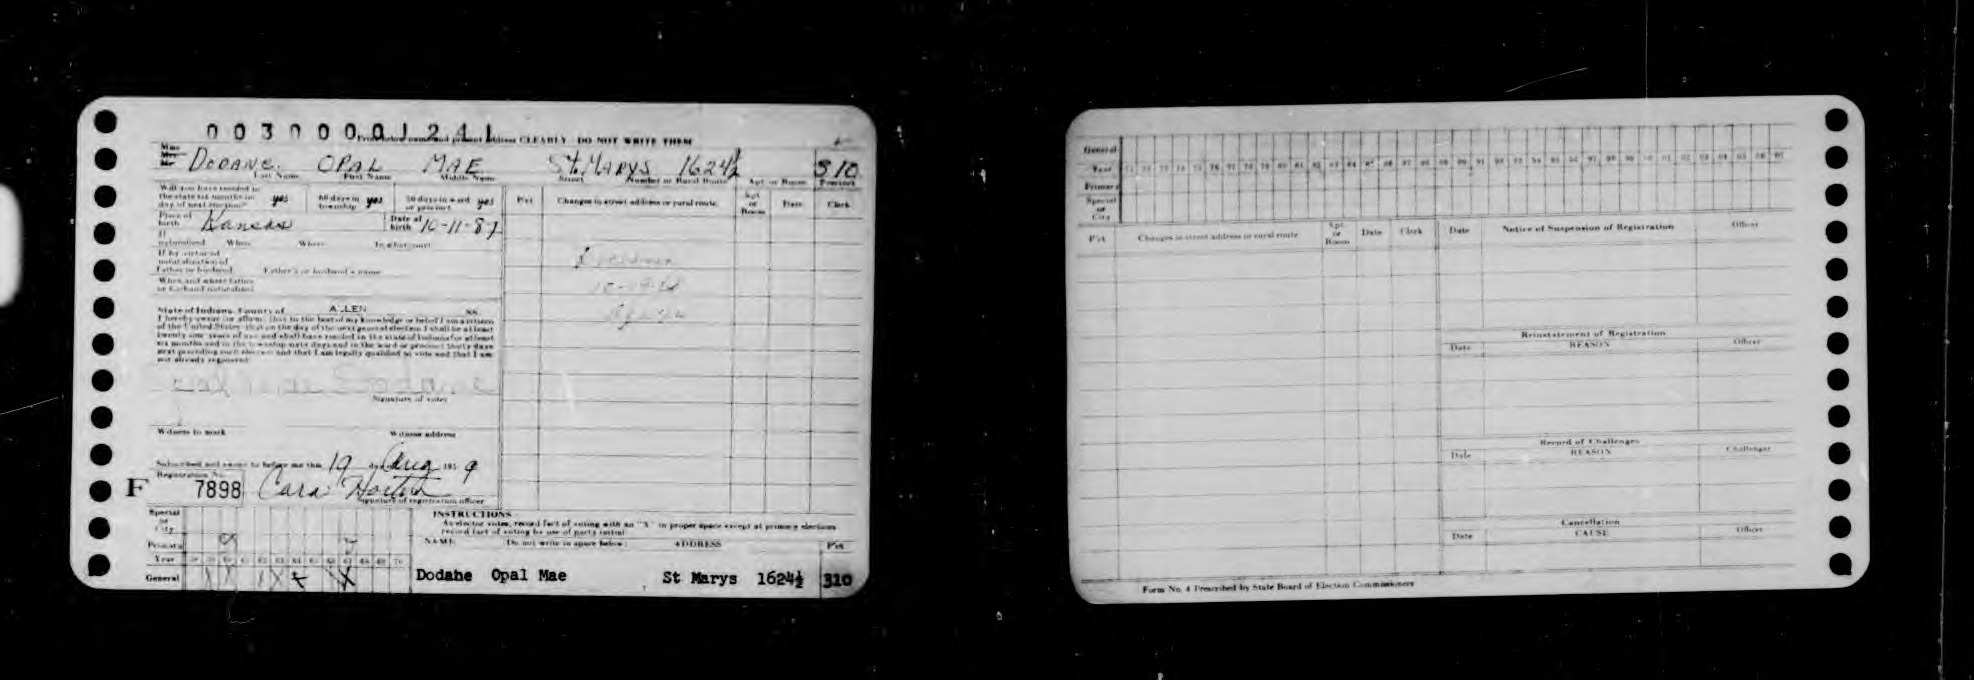 0030001241
Print below name and present address CLEARLY DO NOT WRITE THEM
Miss
Mrs
Mr
DODANE OPAL MAE St. MARYS 1624½ 310
Last Name First Name Middle Name Street Number or Rural Route Apt or Room Precinct
Will you have resided in the state six months on day of next election? yes 60 days in township yes 30 days in ward or precinct yes
Pct Changes in street address or rural route Apt or Room Date Clerk
Place of birth Kansas Date of birth 10-11-87
If naturalized When Where In what court
If by virtue of naturalization of Father or husband Father's or husband's name
When and where father or husband naturalized
Deceased
State of Indiana, County of ALLEN SS.
I hereby swear (or affirm) that to the best of my knowledge or belief I am a citizen
of the United States, that on the day of the next general election I shall be at least
twenty one years of age and shall have resided in the state of Indiana for at least
six months and in the township sixty days and in the ward or precinct thirty days
next preceding such election and that I am legally qualified to vote and that I am
not already registered.
Opal Mae Dodane
Signature of voter
Witness to mark Witness address
Subscribed and sworn to before me this 19 day Aug 195 9
Registration No.
F 7898 Cara Horton
Signature of registration officer
INSTRUCTIONS
As elector votes, record fact of voting with an "X" in proper space except at primary elections
record fact of voting by use of party initial
Special or City
Primary
Year
General
NAME Do not write in space below ADDRESS Pct
Dodahe Opal Mae St Marys 1624½ 310
General
Year
Primary
Special or City
Pct Changes in street address or rural route Apt or Room Date Clerk
Date Notice of Suspension of Registration Officer
Reinstatement of Registration
Date REASON Officer
Record of Challenges
Date REASON Challenger
Cancellation
Date CAUSE Officer
Form No. 4 Prescribed by State Board of Election Commissioners